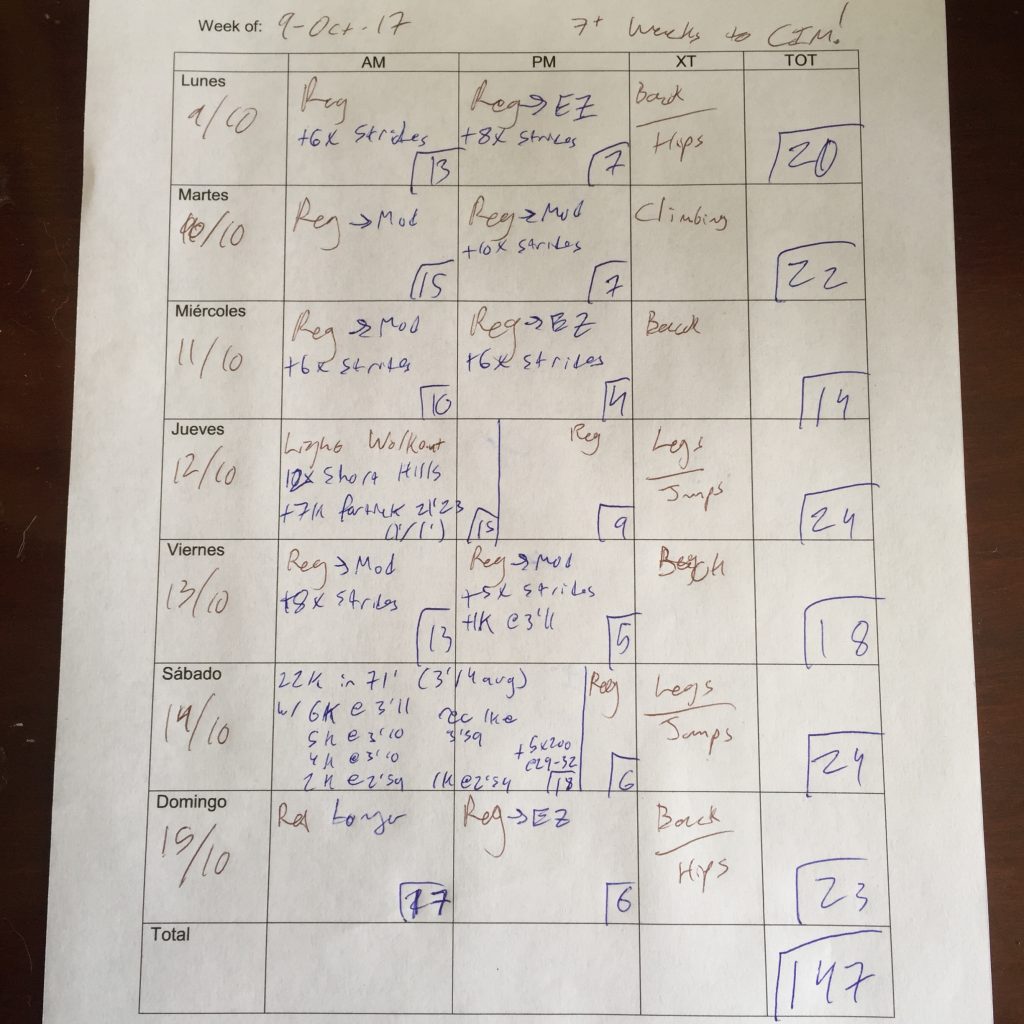 Week of: 9-Oct-17 7+ Weeks to CIM!
AM PM XT TOT
Lunes
9/10
Reg
+6x Strides
13
Reg→EZ
+8x Strides
7
Back
Hips
20
Martes
10/10
Reg→Mod
15
Reg→Mod
+10x Strides
7
Climbing
22
Miércoles
11/10
Reg→Mod
+6x Strides
10
Reg→EZ
+6x Strides
4
Back
14
Jueves
12/10
Light Workout
Short Hills
+7K fartlek 21'23
(1'/1')
15
Reg
9
Legs
Jumps
24
Viernes
13/10
Reg→Mod
+8x Strides
13
Reg→Mod
+5x Strides
+1K @3'11
5
18
Sábado
14/10
22K in 71' (3'14 avg)
w/ 6K @ 3'11
5K @ 3'10
4K @ 3'10
2K @ 2'59
rec 1K@
3'59
1K @2'54
+5x200
@29-32
18
Reg
6
Legs
Jumps
24
Domingo
15/10
Longer
17
Reg→EZ
6
Back
Hips
23
Total
147